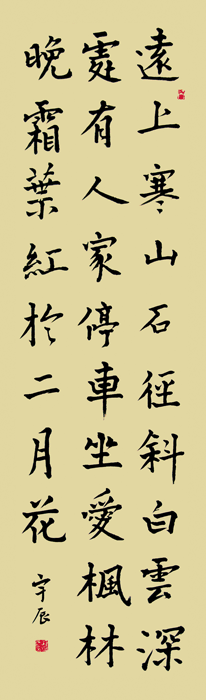 遠上寒山石徑斜白雲深
處有人家停車坐愛楓林
晚霜葉紅於二月花
宇辰